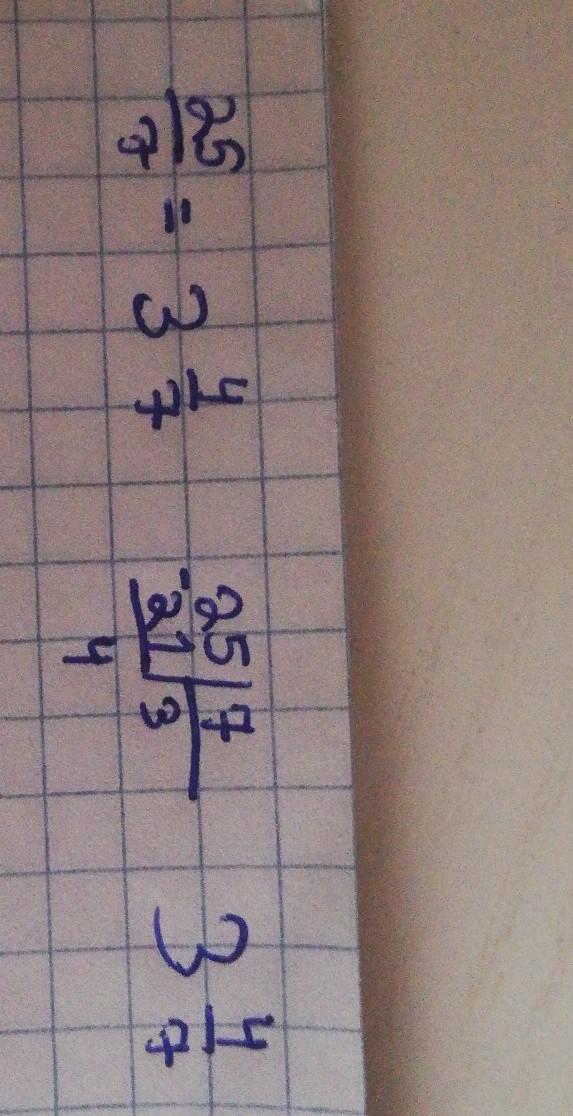 25/7 = 3 4/7
25 | 7
- 21 | 3
4
3 4/7